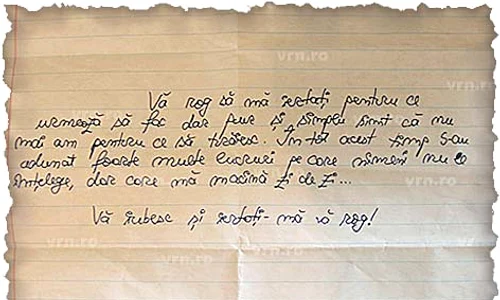 vrn.ro
vrn.ro
Vă rog să mă iertați pentru ce
urmează să fac dar pur și simplu simt că nu
mai am pentru ce să trăiesc. În tot acest timp s-au
adunat foarte multe lucruri pe care nimeni nu le
înțelege, dar care mă macină zi de zi...
Vă iubesc și iertați-mă vă rog!
vrn.ro
vrn.ro